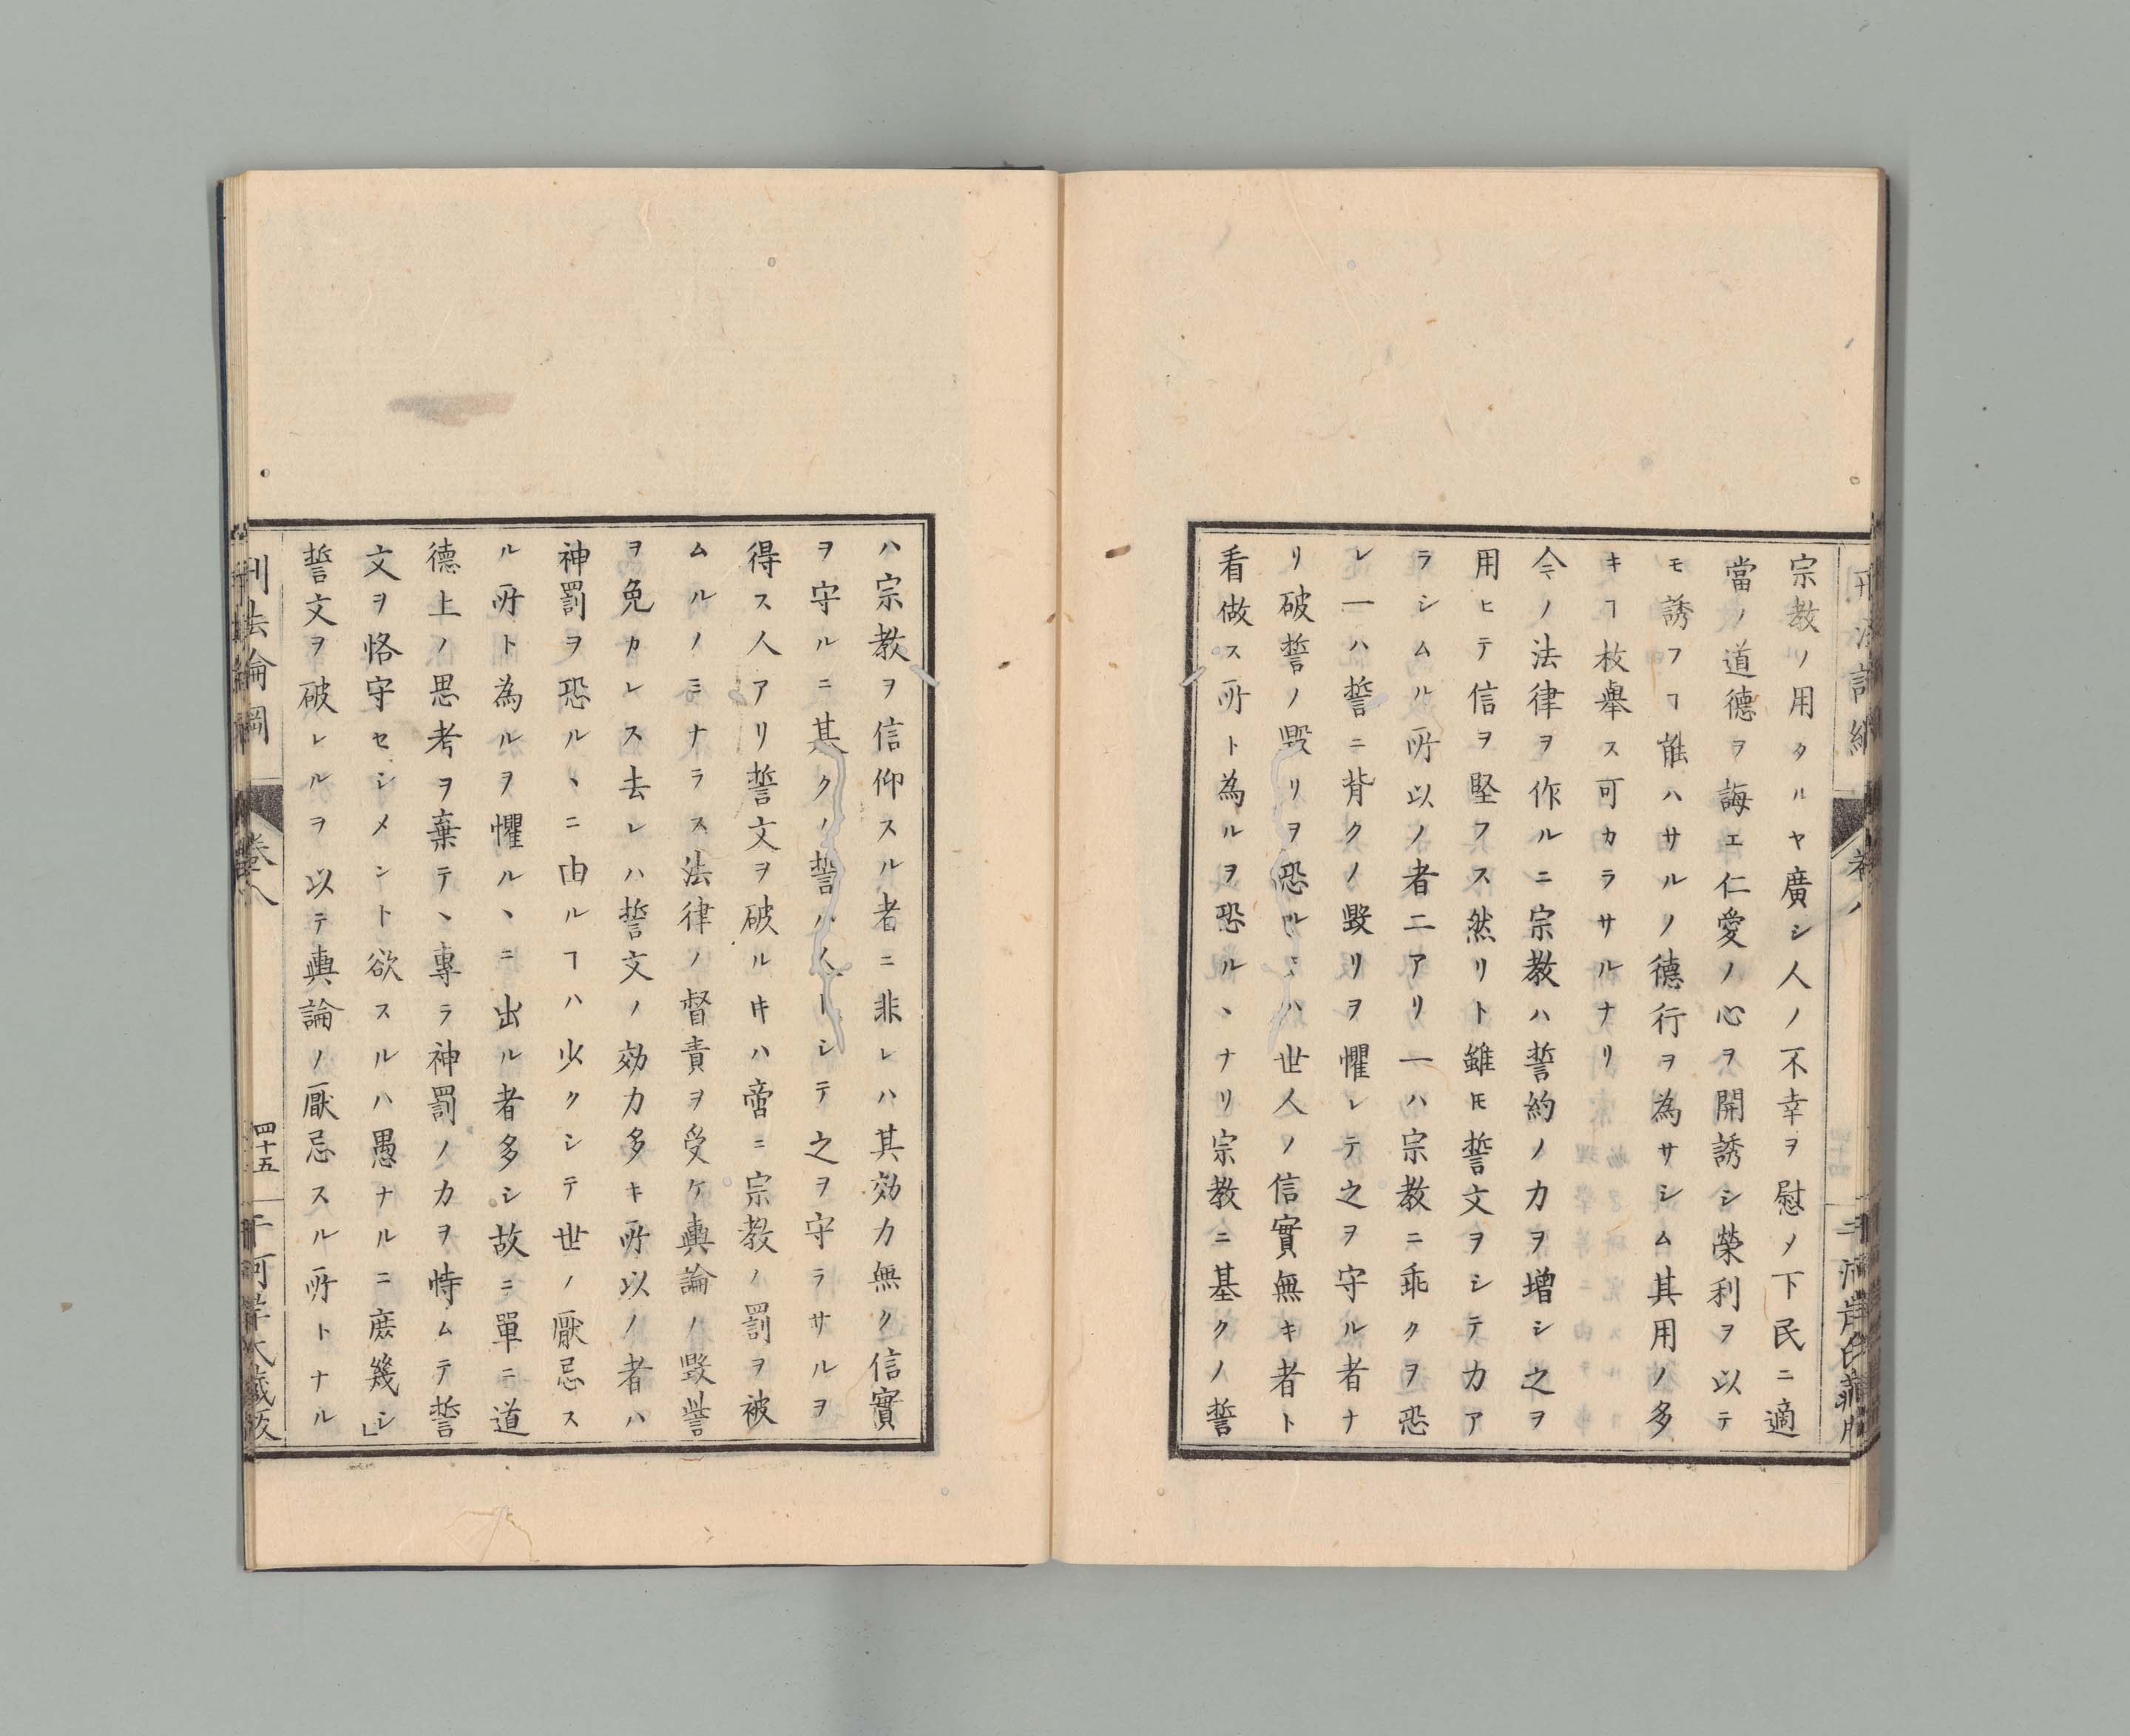 宗教ノ用タルヤ廣シ人ノ不幸ヲ慰メ下民ニ適
當ノ道德ヲ誨エ仁愛ノ心ヲ開誘シ榮利ヲ以テ
モ誘フヿ能ハサルノ德行ヲ為サシム其用ノ多
キヿ枚舉ス可カラサルナリ
今ノ法律ヲ作ルニ宗教ハ誓約ノ力ヲ增シ之ヲ
用ヒテ信ヲ堅フス然リト雖𪜈誓文ヲシテ力ア
ラシムル所以ノ者二アリ一ハ宗教ニ乖クヲ恐
レ一ハ誓ニ背クノ毀リヲ懼レテ之ヲ守ル者ナ
リ破誓ノ毀リヲ恐ルヽハ世人ノ信實無キ者ト
看做ス所ト為ルヲ恐ルヽナリ宗教ニ基クノ誓
ハ宗教ヲ信仰スル者ニ非レハ其効力無ク信實
ヲ守ルニ其クノ誓ハ人トシテ之ヲ守ラサルヲ
得ス人アリ誓文ヲ破ル𪜈ハ啻ニ宗教ノ罰ヲ被
ムルノミナラス法律ノ督責ヲ受ケ輿論ノ毀訾
ヲ免カレス去レハ誓文ノ効力多キ所以ノ者ハ
神罰ヲ恐ルヽニ由ルヿハ少クシテ世ノ厭忌ス
ル所ト為ルヲ懼ルヽニ出ル者多シ故ニ單ニ道
德上ノ思考ヲ棄テヽ專ラ神罰ノ力ヲ恃ムテ誓
文ヲ恪守セシメント欲スルハ愚ナルニ庶幾シ」
誓文ヲ破レルヲ以テ輿論ノ厭忌スル所トナル
刑法論綱
卷八
四十五